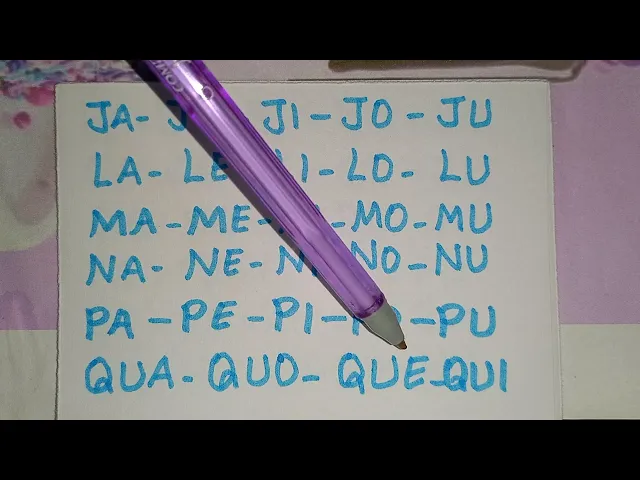 JA- J JI - JO - JU
LA - LE LI - LO - LU
MA - ME - MO - MU
NA - NE - NI NO - NU
PA - PE - PI - PO - PU
QUA - QUO - QUE - QUI